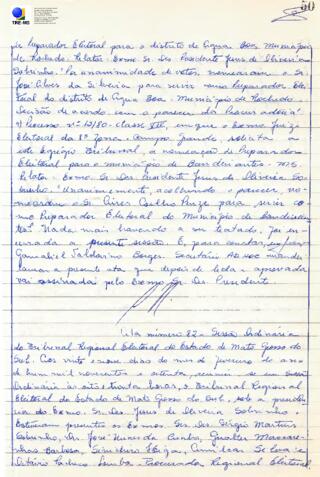 TRE-MS
de Preparador Eleitoral para o distrito de Água Boa, Município
de Rochedo. Relator: Exmo. Sr. Des. Presidente Jesus de Oliveira
Sobrinho. Por unanimidade de votos, nomearam o Sr.
José Alves da Silveira para servir como Preparador Elei
toral do distrito de Água Boa - Município de Rochedo.
Decisão de acordo com o parecer da Procuradoria.
Processo nº 12/80 - classe VII, em que o Exmo. Juiz
Eleitoral da 8ª Zona - Campo Grande, solicita a
este Egrégio Tribunal, a nomeação de Preparador
Eleitoral para o município de Bandeirantes - MS.
Relator: Exmo. Sr. Des. Presidente Jesus de Oliveira So-
brinho. Unanimemente, acolhendo o parecer, no-
mearam o Sr. Pires Coelho para servir co-
mo Preparador Eleitoral do Município de Bandeirantes
Nada mais havendo a ser tratado, foi en-
cerrada a presente sessão. E, para constar, eu,
Gamaliel Borges, Secretário Ad hoc mandei
lavrar a presente ata que depois de lida e aprovada
vai assinada pelo Exmo. Sr. Des. Presidente.
Ata número 82 - Sessão Ordinária
do Tribunal Regional Eleitoral do Estado de Mato Grosso do
Sul. Aos vinte e nove dias do mês de janeiro do ano
de hum mil novecentos e oitenta, reuniu-se em sessão
Ordinária às oito e trinta horas, o Tribunal Regional
Eleitoral do Estado de Mato Grosso do Sul, sob a presidên
cia do Exmo. Sr. Des. Jesus de Oliveira Sobrinho.
Estiveram presentes os Exmos. Srs. Des. Sérgio Martins
Sobrinho, Dr. José Nunes da Cunha, Gualter Mascare-
nhas Barbosa,
Procurador Regional Eleitoral